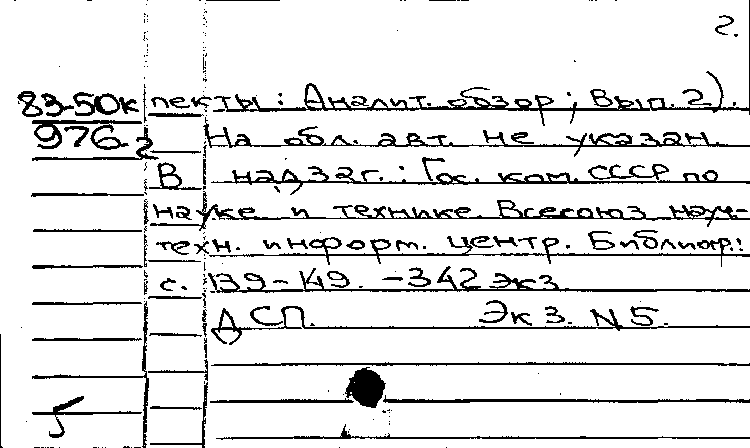 2.
83-50к пекты: Аналит. обзор; Вып. 2).
976.2 На обл. авт. не указан.
В надзаг.: Гос. ком. СССР по
науке и технике. Всесоюз. науч-
техн. информ. центр. Библиогр.:
с. 139-149. -342 экз.
ДСП. Экз. N 5.
5